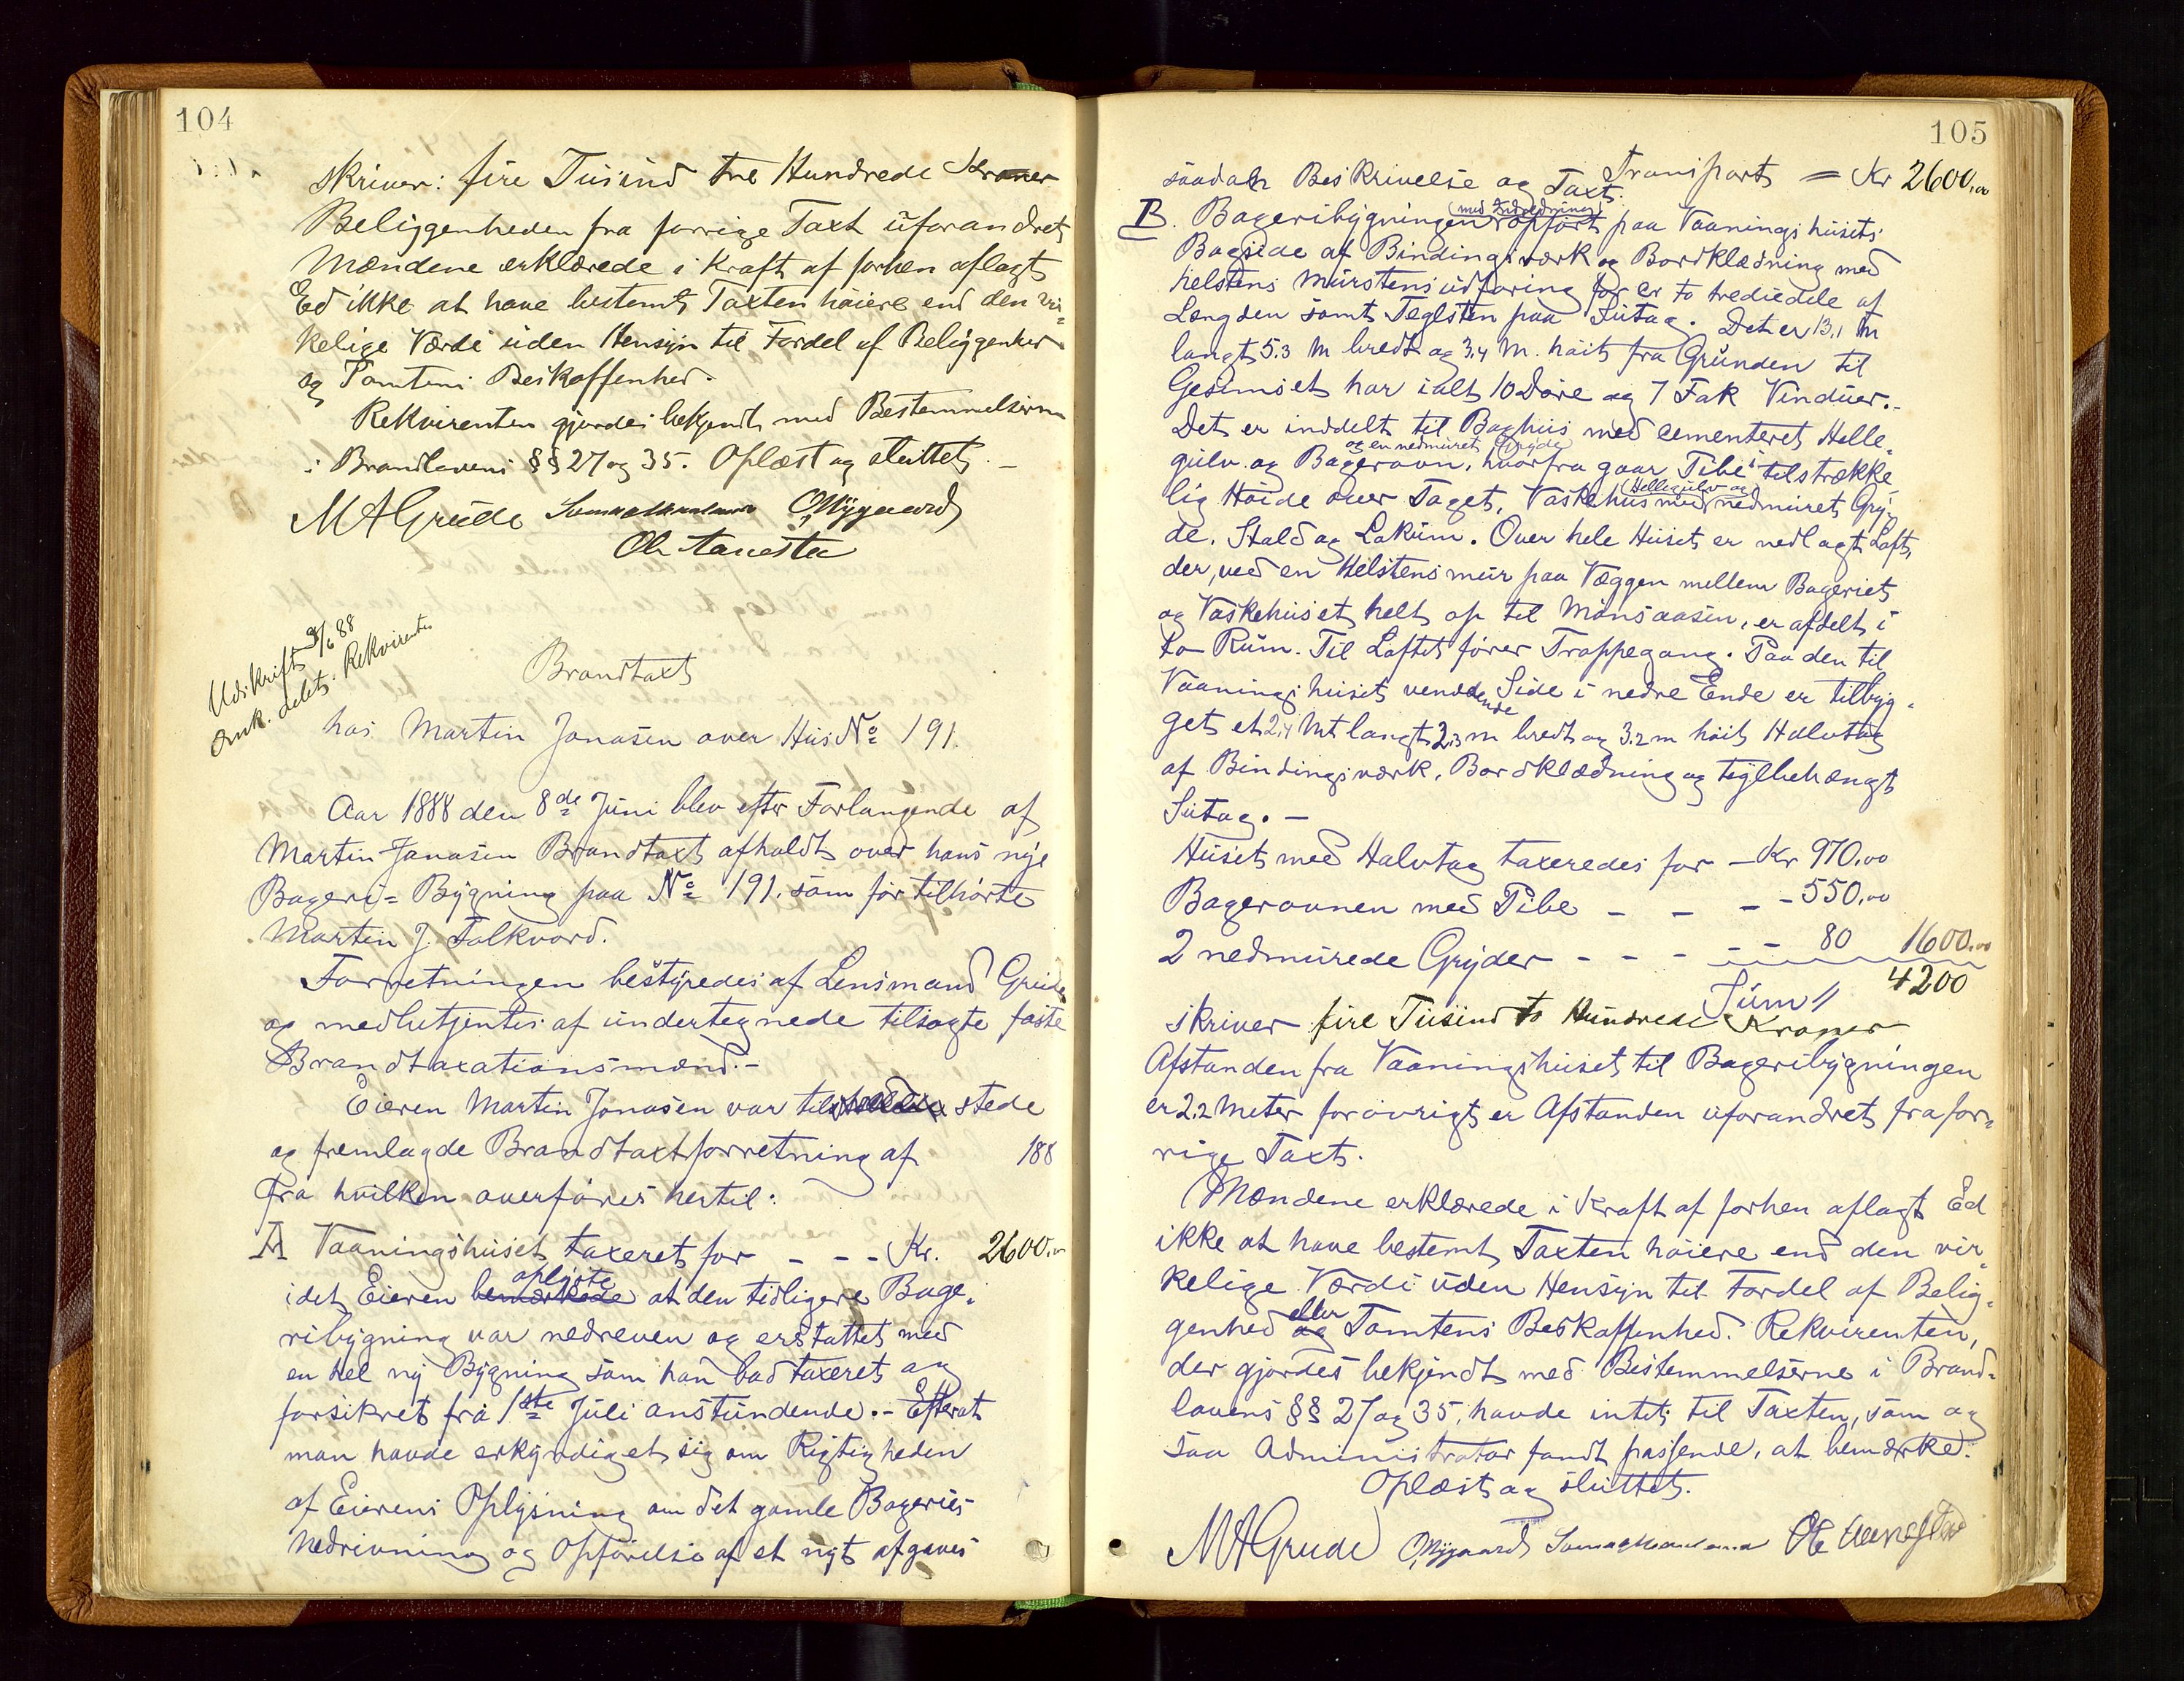 104
skriver: fire Tusind tre Hundrede Kroner
Beliggenheden fra forrige Taxt uforandret
Mændene erklærede i Kraft af forhen aflagt
Ed ikke at have bestemt Taxten høiere end den vir=
kelige Værdi uden Hensyn til Fordel af Beliggenhed
og Tomtens Beskaffenhed.
Rekvirenten gjordes bekjendt med Bestemmelserne
i Brandlovens §§ 27 og 35. Oplæst og sluttet. –
M A Grude O. Nygaard
Udskrift 9/6 88
Omk. debts. Rekvirenten
Brandtaxt
hos Martin Jonasen over Hus No 191.
Aar 1888 den 8de Juni blev efter Forlangende af
Martin Jonasen Brandtaxt afholdt over hans nye
Bageri=Bygning paa No 191. som før tilhørte
Martin J. Folkvord.
Forretningen bestyredes af Lensmand Grude
og medbetjentes af undertegnede tilsagte faste
Brandtaxationsmænd. –
Eieren Martin Jonasen var til stede
og fremlagde Brandtaxtforretning af 188
fra hvilken overføres hertil:
A Vaaningshuset taxeret for – – – Kr. 2600.00
oplyste
idet Eieren bemærkede at den tidligere Bage=
ribygning var nedreven og erstattet med
en hel ny Bygning som han bad taxeret og
forsikret fra 1ste Juli anstundende. – Efterat
man havde erkyndiget sig om Rigtigheden
af Eierens Oplysning om det gamle Bageries
Nedrivning og Opførelse af et nyt afgaves
105
saadan Beskrivelse og Taxt. Transport = Kr 2600.00
(med Indredning)
B. Bageribygningen opført paa Vaaningshusets
Bagside af Bindingsværk og Bordklædning med
helstens Murstensudforing for er to trediedele af
Længden samt Teglsten paa Sutag. Det er 13,1 m
langt 5.3 m bredt og 3,4 m. høit fra Grunden til
Gesimset har ialt 10 Døre og 7 Fak Vinduer. –
Det er inddelt til Baghus med cementeret Helle=
og en nedmuret Gryde
gulv og Bagerovn, hvorfra gaar Pibe i tilstrække
(Hellegulv og
lig Høide over Taget, Vaskehus med nedmuret Gry=
de, Stald og Lokum. Over hele Huset er nedlagt Loft,
der, ved en Helstensmur paa Væggen mellem Bageriet
og Vaskehuset helt op til Mønsaasen, er afdelt i
to Rum. Til Loftet fører Trappegang. Paa den til
Vaaningshuset vendende Side i nedre Ende er tilbyg=
get et 2,4 Mt langt 2,3 m bredt og 3.2 m høit Halvtag
af Bindingsværk, Bordklædning og teglbehængt
Sutag. –
Huset med Halvtag taxeredes for – Kr 970.00
Bagerovnen med Pibe – – – – 550.00
2 nedmurede Gryder – – – – – 80 1600.00
Sum 4200
skriver fire Tusind to Hundrede Kroner
Afstanden fra Vaaningshuset til Bageribygningen
er 2.2 Meter forøvrigt er Afstanden uforandret fra for=
rige Taxt.
Mændene erklærede i Kraft af forhen aflagt Ed
ikke at have bestemt Taxten høiere end den vir=
kelige Værdi uden Hensyn til Fordel af Belig=
eller
genhed og Tomtens Beskaffenhed. Rekvirenten,
der gjordes bekjendt med Bestemmelserne i Brand=
lovens §§ 27 og 35, havde intet til Taxten, som og
saa Administrator fandt passende, at bemærke.
Oplæst og sluttet.
M A Grude O. Nygaard